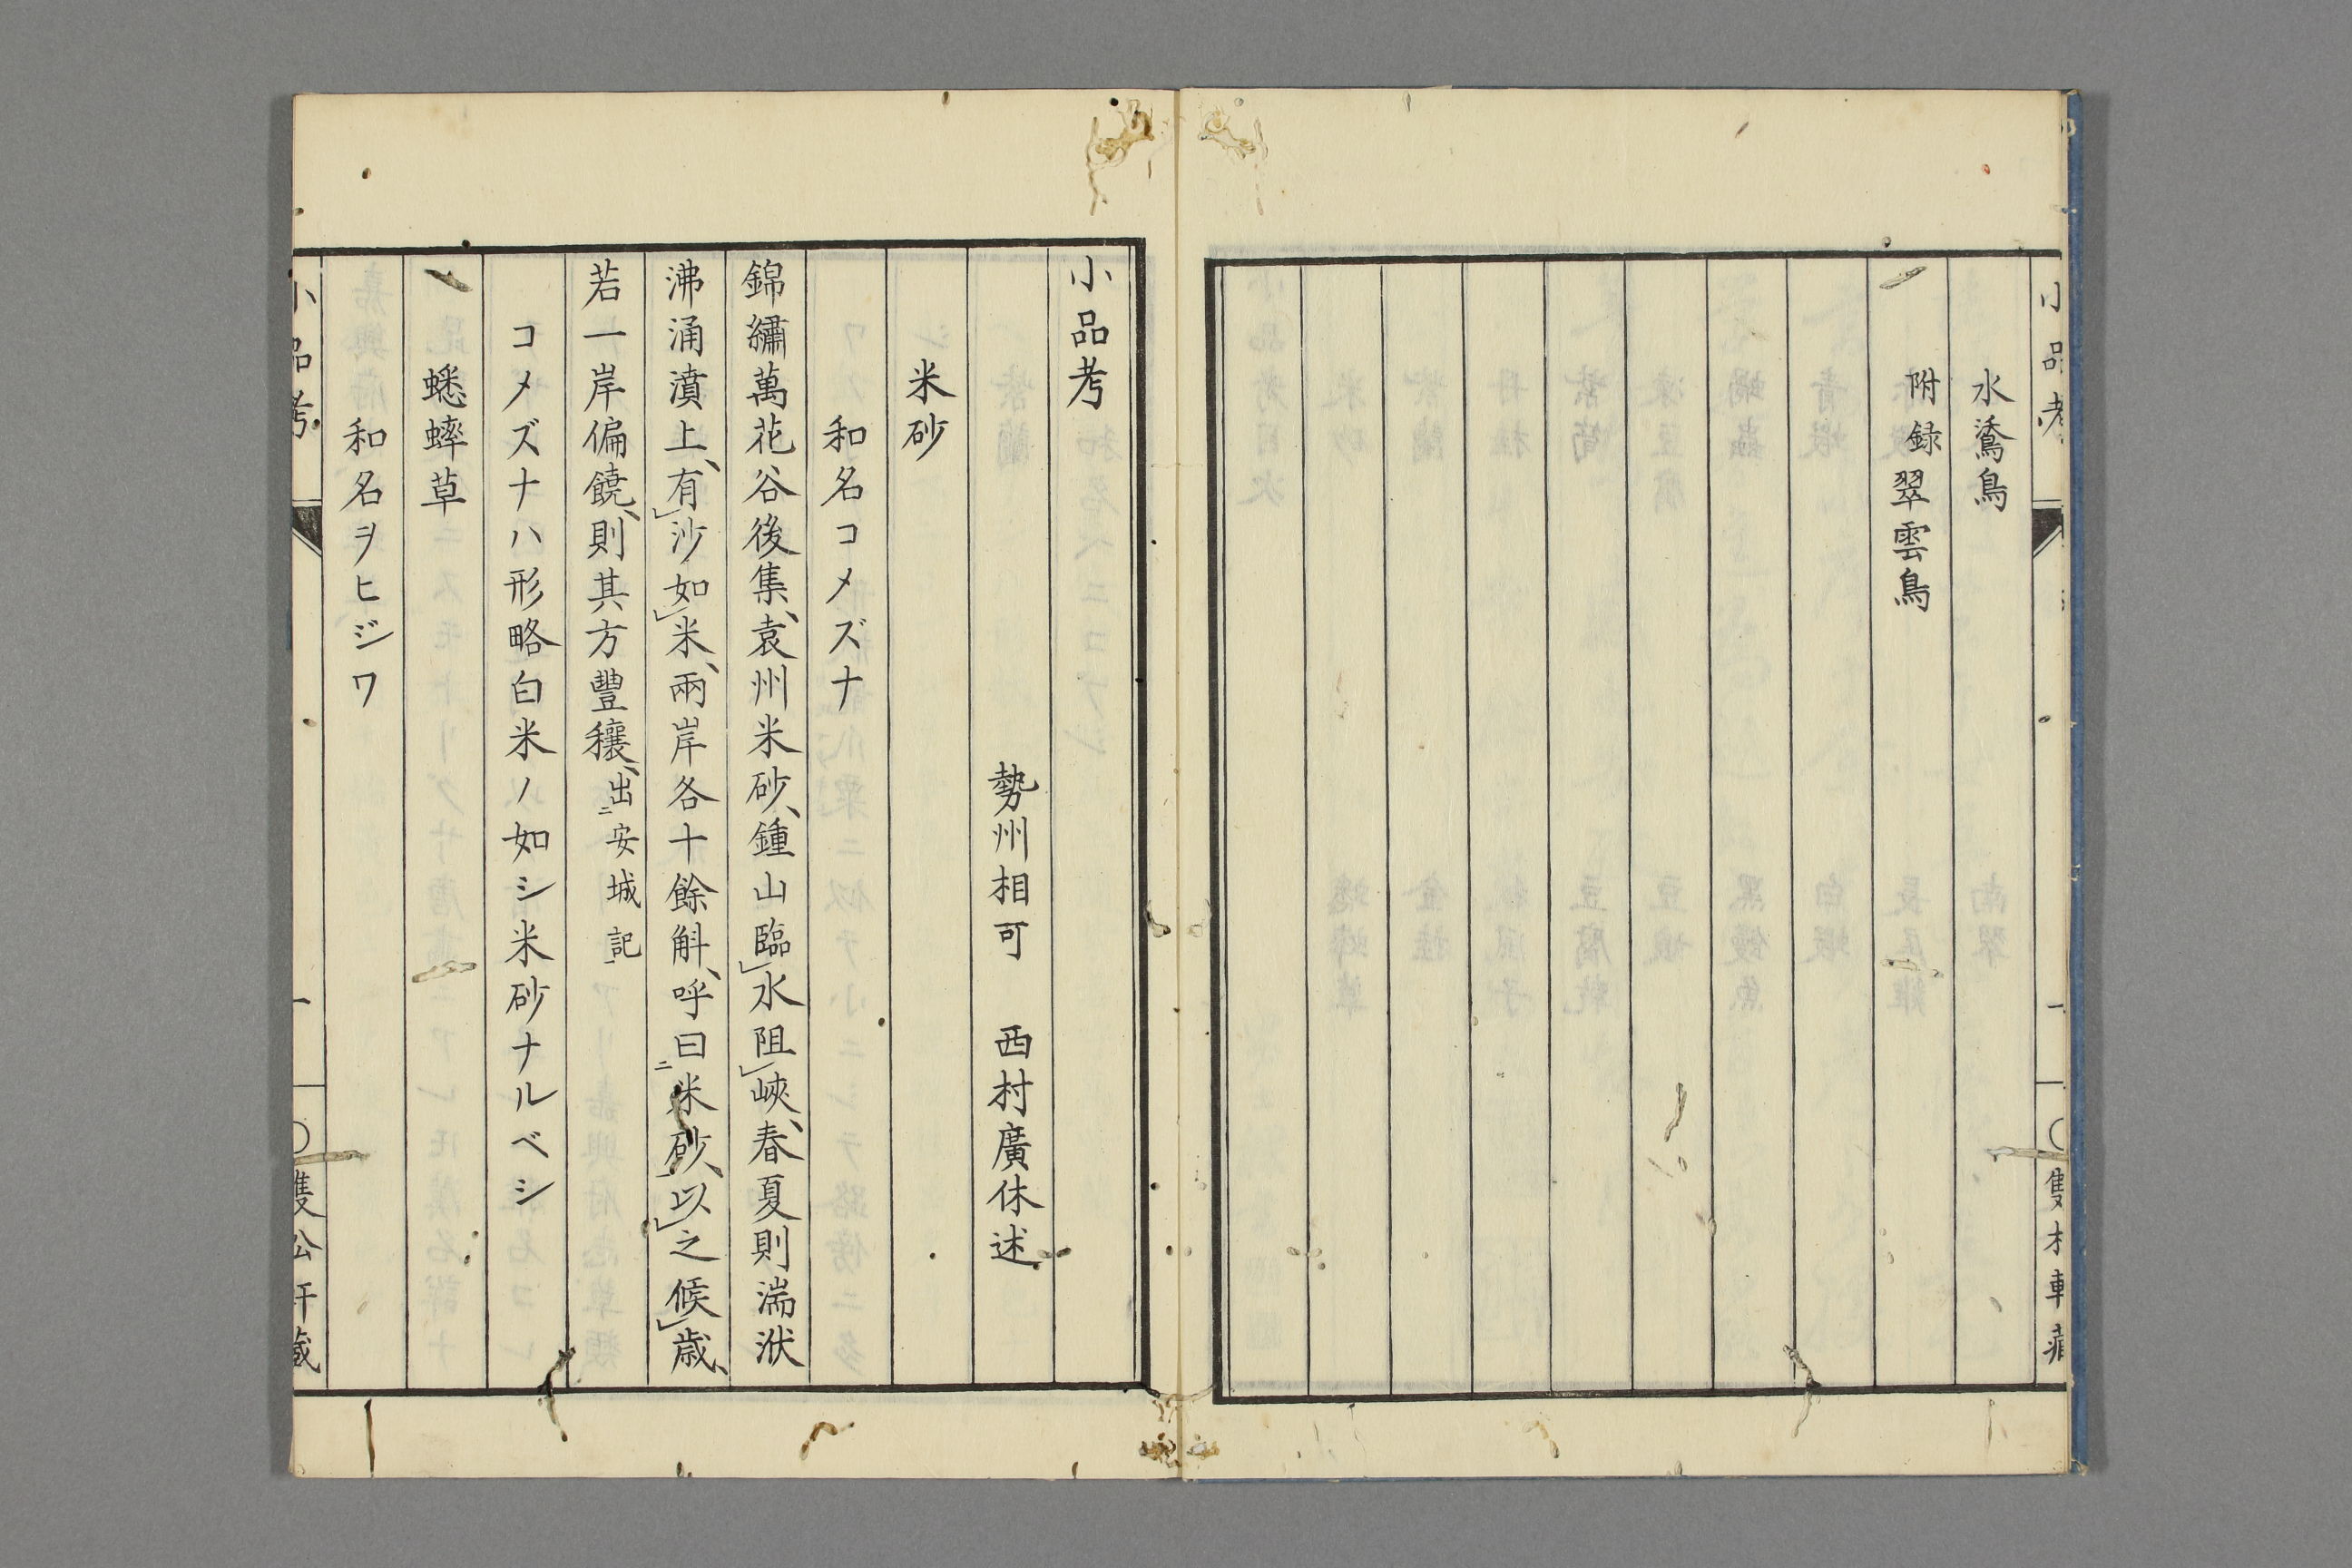 水鷸鳥
附録 翠雲鳥
小品考
勢州相可 西村廣休述
米砂
和名コメズナ
錦繡萬花谷後集、袁州米砂、鍾山臨水阻峽、春夏則湍洑
沸涌濆上、有沙如米、兩岸各十餘斛、呼曰ニ米砂、以之候歳、
若一岸偏饒、則其方豐穰、出ニ安城記
コメズナハ形略白米ノ如シ米砂ナルベシ
蟋蟀草
和名ヲヒジワ
小品考
一